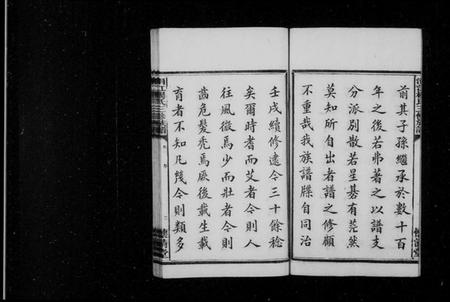 前其子孫繼承於數十百
年之後若弗著之以譜支
分派別散若星碁有茫然
莫知所自出者譜之修顧
不重哉我族譜牒自同治
壬戌續修迄今三十餘稔
矣爾時者而艾者今則人
往風微焉少而壯者今則
齒危髮禿焉厥後載生載
育者不知凡幾今則類多